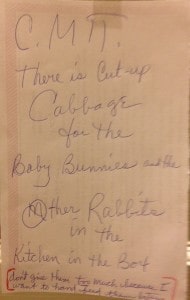 C. M. T.
There is Cut-up
Cabbage
for the
Baby Bunnies and the
Mother Rabbits
in the
Kitchen in the Box
Don't give them too much because I
want to hand feed